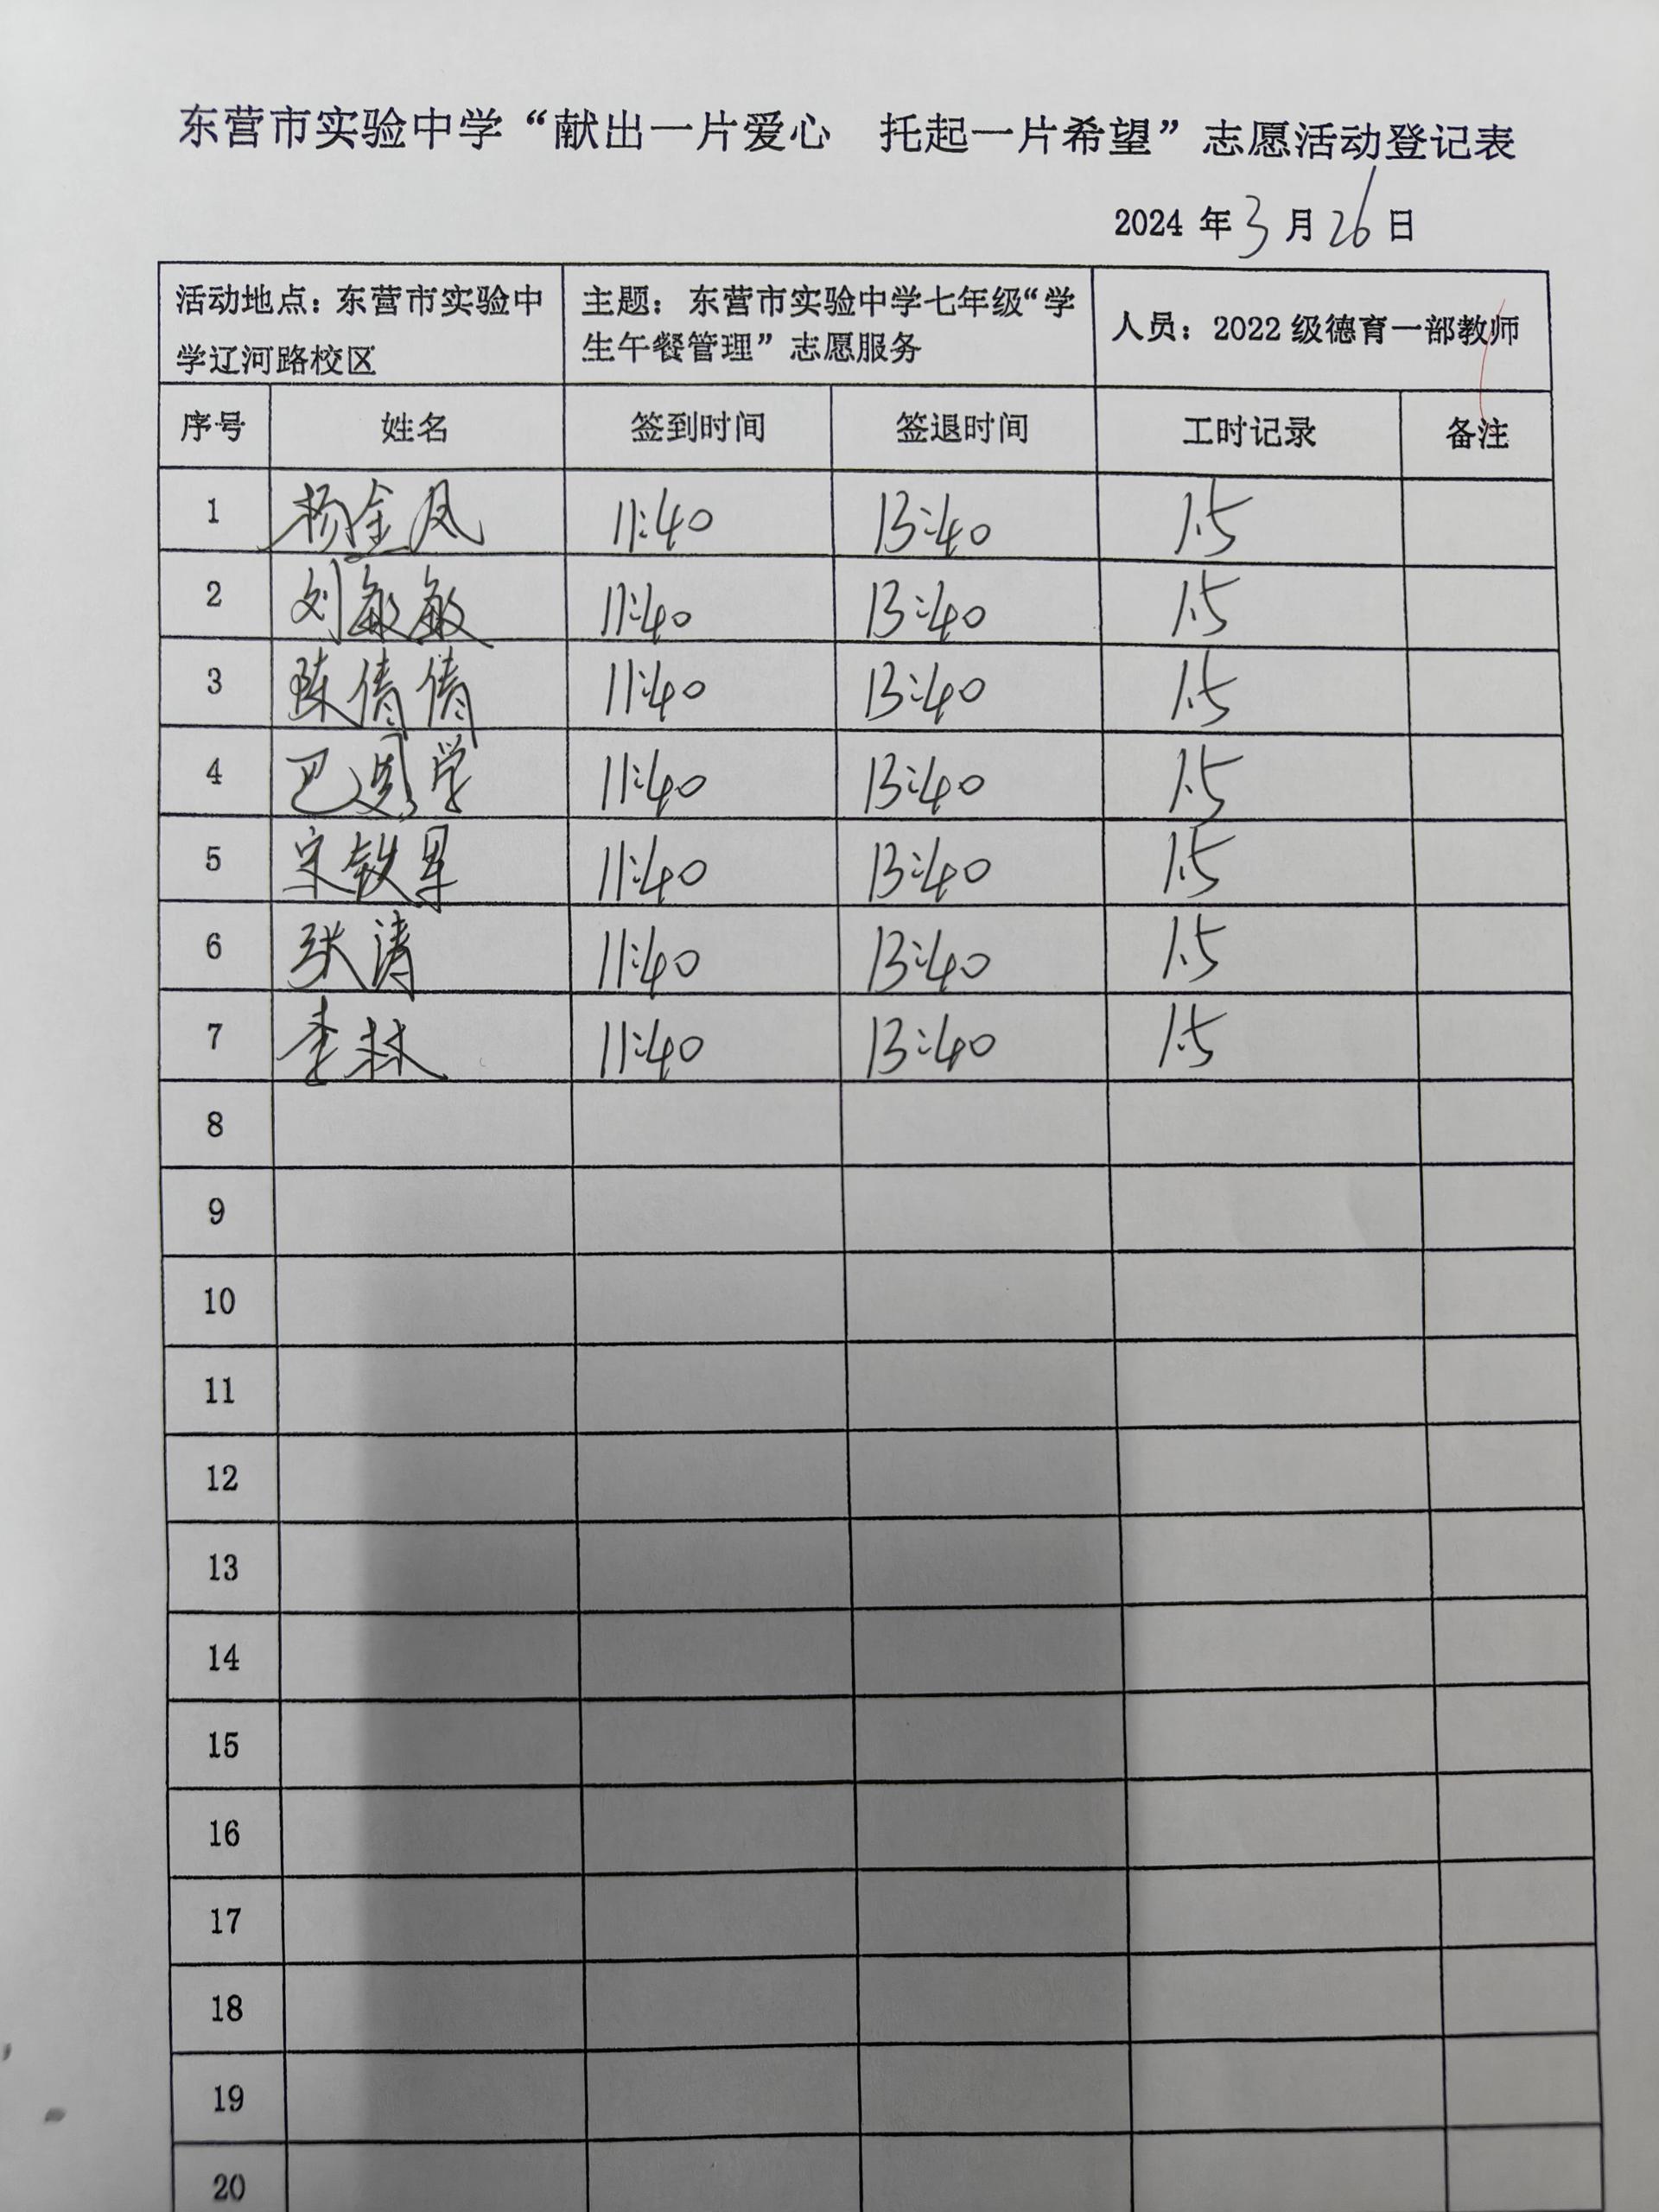 东营市实验中学“献出一片爱心 托起一片希望”志愿活动登记表
2024 年 3 月 26 日
活动地点：东营市实验中
学辽河路校区
主题： 东营市实验中学七年级“学
生午餐管理”志愿服务
人员：2022 级德育一部教师
序号 姓名 签到时间 签退时间 工时记录 备注
1 杨金凤 11:40 13:40 1.5
2 刘敏敏 11:40 13:40 1.5
3 陈倩倩 11:40 13:40 1.5
4 巴 学 11:40 13:40 1.5
5 宋铁军 11:40 13:40 1.5
6 张涛 11:40 13:40 1.5
7 李林 11:40 13:40 1.5
8
9
10
11
12
13
14
15
16
17
18
19
20